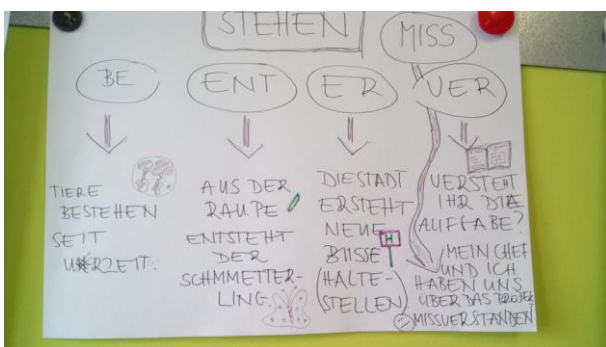 STEHEN
MISS
BE
ENT
ER
VER
TIERE
BESTEHEN
SEIT
URZEIT.
AUS DER
RAUPE
ENTSTEHT
DER
SCHMMETTER-
LING.
DIESTADT
ERSTEHT
NEUE
BUSSE.
H
(HALTE-
STELLEN)
VERSTEHT
IHR DIE
AUFFABE?
MEIN CHEF
UND ICH
HABEN UNS
ÜBER DAS PROJEK
MISSVERSTANDEN